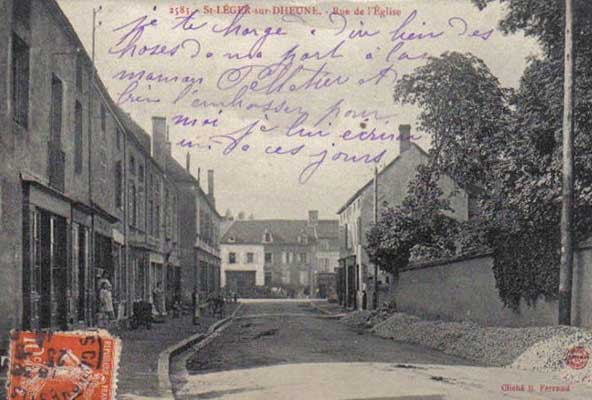 2583 - St-LÉGER-sur-DHEUNE. - Rue de l'Église
je te charge d'un bien des
choses de ma part à la
maman Pelletier et
bien l'embrasser pour
moi je lui écrirai
un de ces jours
Cliché B. Ferrand